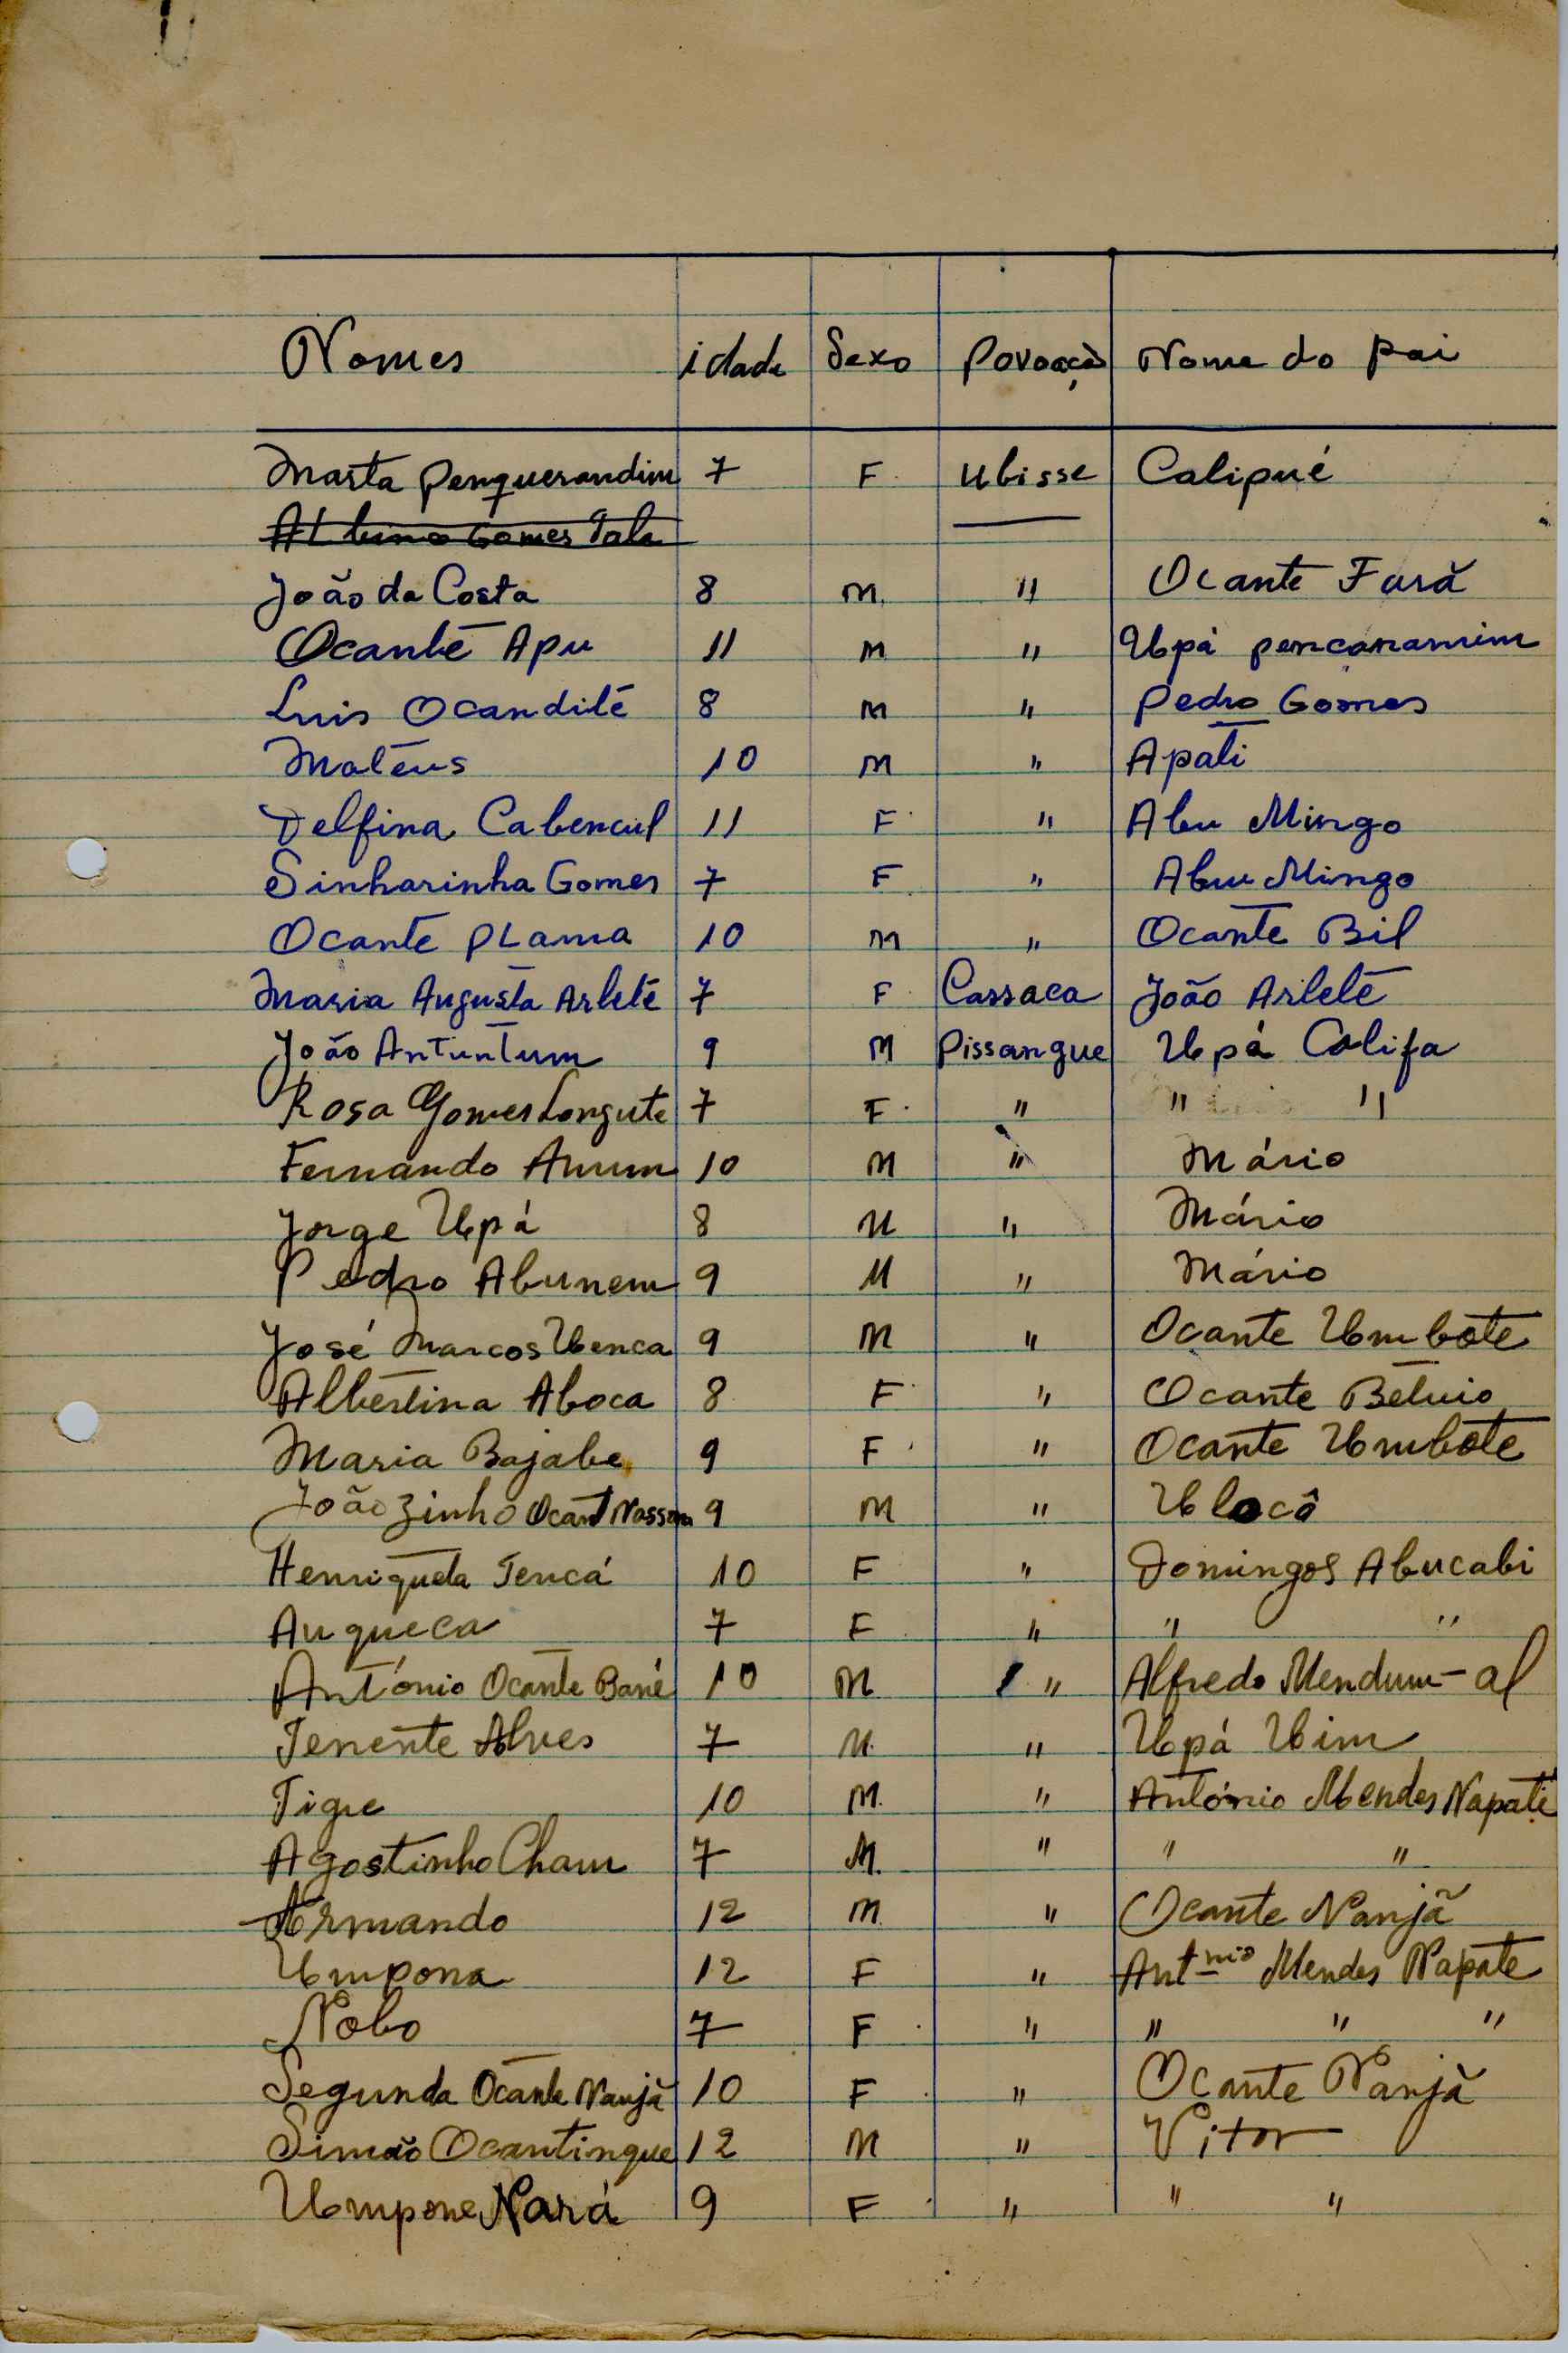 Nomes idade Sexo Povoação Nome do pai
Marta Penquerandim 7 F. Ubisse Calipué
Albino Gomes Tala
João da Costa 8 M. " Ocante Fará
Ocante Apu 11 M " Upá pencanamim
Luis Ocandité 8 M " Pedro Gomes
Mateus 10 M " Apati
Delfina Cabencul 11 F " Abu Mingo
Sinharinha Gomes 7 F " Abu Mingo
Ocante PLama 10 M " Ocante Bil
Maria Augusta Arleté 7 F Cassaca João Arleté
João Antuntum 9 M Pissangue Upá Califa
Rosa Gomes Longute 7 F. " " "
Fernando Anum 10 M " Mário
Jorge Upá 8 M " Mário
Pedro Abunem 9 M " Mário
José Marcos Ubenca 9 M " Ocante Umbote
Albertina Aboca 8 F " Ocante Betuio
Maria Bajabe 9 F " Ocante Umbote
João Zinho Ocant Nassom 9 M " Ublocô
Henriqueta Tencá 10 F " Domingos Abucabi
Auqueca 7 F " " "
António Ocante Bané 10 M " Alfredo Mendum-al
Tenente Alves 7 M. " Upá Uim
Tigre 10 M. " António Mendes Napati
Agostinho Cham 7 M. " " "
Armando 12 M " Ocante Nanjã
Umpona 12 F " Antnio Mendes Napate
Nobo 7 F " " " "
Segunda Ocante Nanjã 10 F " Ocante Nanjã
Simão Ocantingue 12 M " Vitor
Umpone Nará 9 F " " "